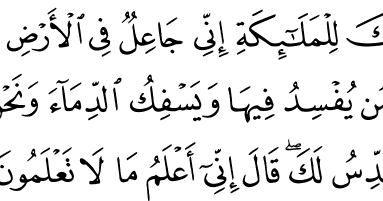 كَ لِلْمَلَـٰٓئِكَةِ إِنِّى جَاعِلٌ فِى ٱلْأَرْضِ
مَن يُفْسِدُ فِيهَا وَيَسْفِكُ ٱلدِّمَآءَ وَنَحْ
دِّسُ لَكَ ۖ قَالَ إِنِّىٓ أَعْلَمُ مَا لَا تَعْلَمُونَ